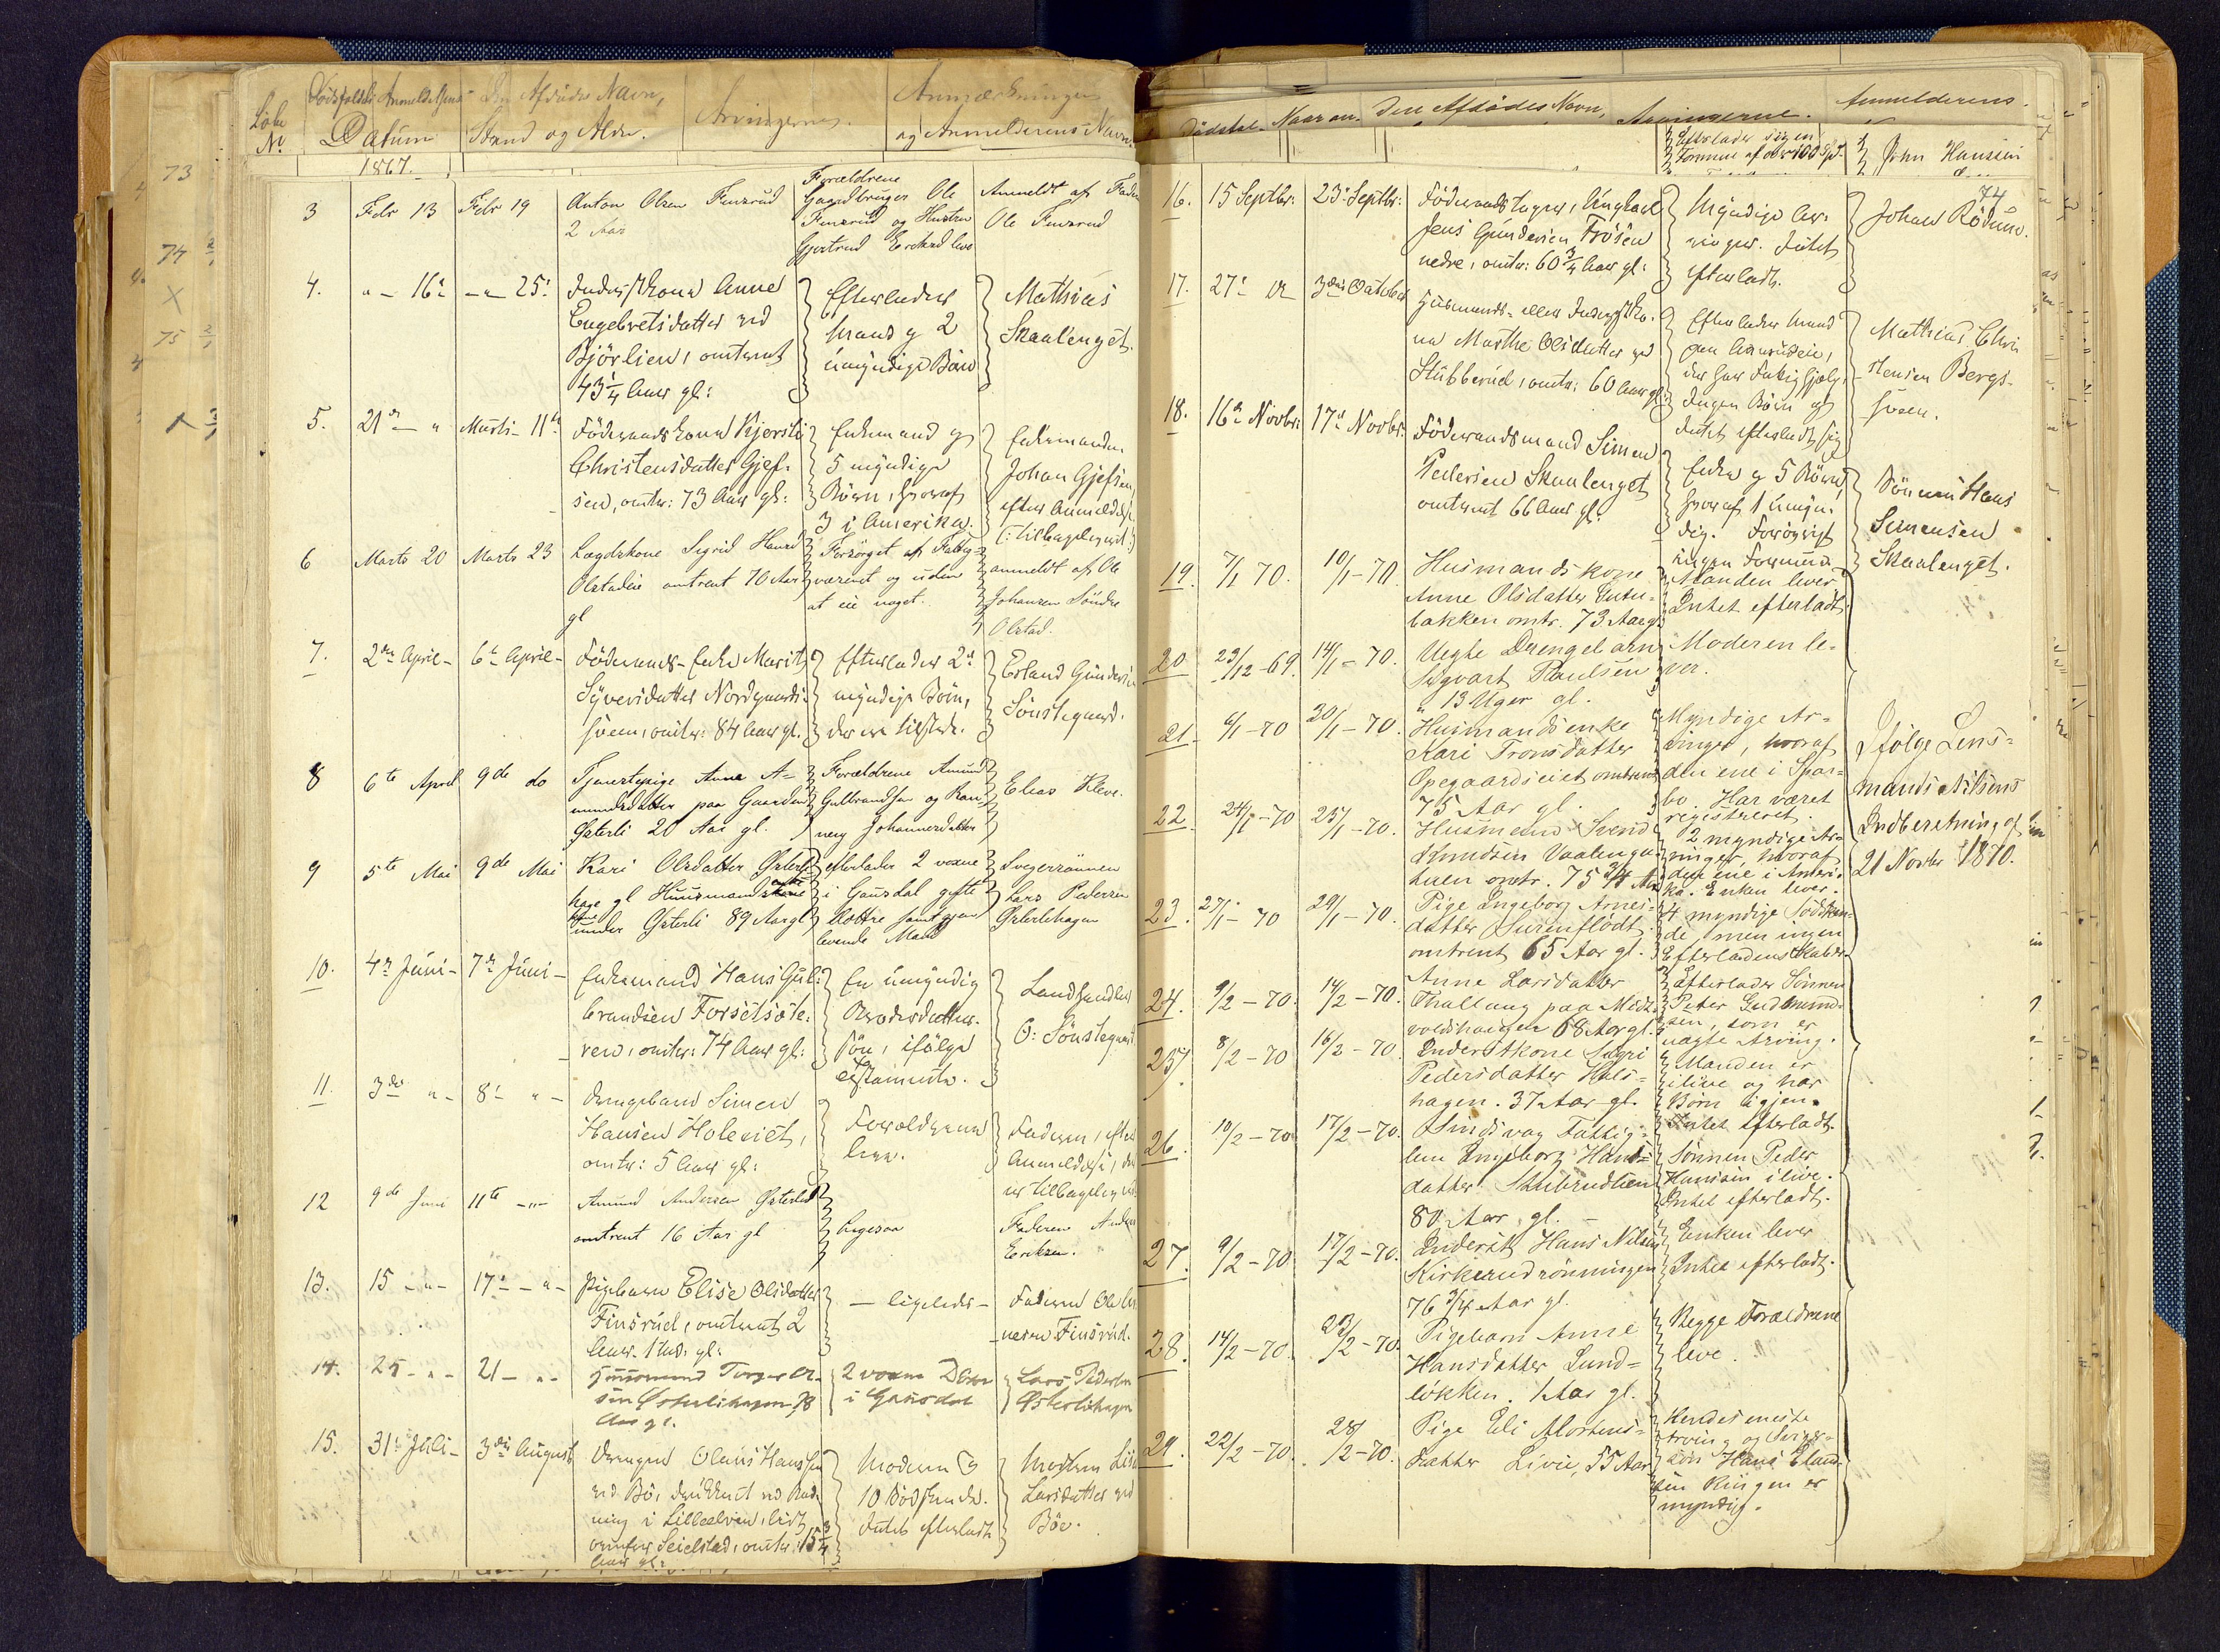 Löbe N.
Dödsfaldets Anmeldelsens
Datum
Den Afdödes Navn,
Stand og Alder.
Arvingerne.
Anmærkninger
og Anmelderens Navn.
1867.
3
Febr 13
Febr 19
Anton Olsen Finsrud
2 Aar
Forældrene
Gaardbruger Ole
Finsrud og Hustru
Gjertrud
Anmeldt af Faderen
Ole Finsrud
4.
" - 16de
-"- 25de
Inderstkona Anne
Engebretsdatter ved
Björlien, omtrent
43 1/4 Aar gl:
Efterlader
Mand og 2
umyndige Börn
Mathias
Skaalenget.
5.
21de - "
Marts - 11te
Föderaadskona Kjersti
Christensdatter Gjef-
sen, omtr: 73 Aar gl:
Enkemand og
5 myndige
Börn, hvoraf
3 i Amerika.
Enkemanden
Johan Gjefsen,
efter Anmeldelse
6
Marts 20
Marts 23
Lægdskone Sigrid Hansd
Olstadeie omtrent 70 Aar
gl
Forsörget af Fattig-
væsenet og uden
at eie noget.
anmeldt af Ole
Johansen Söndre
Olstad.
7.
2den April -
6te April -
Föderaads-Enke Marit
Syversdatter Nordgaards-
sveen, omtr: 84 Aar gl.
Efterlader 2de
myndige Börn,
der er tilstede.
Erland Gundersen
Sönstegaard.
8
6te April
9de do
Tjenestepige Anne A-
mundsdatter paa Gaarden
Österli 20 Aar gl.
Forældrene Amund
Gulbrandsen og Ran-
neug Johannesdatter
Elias Kleve.
9
5te Mai
9de Mai
Kari Olsdatter Österli
hage gl Huusmandskone
under Österli 89 Aar gl
efterlader 2 voxne
i Gausdal gifte
Döttre samt gjen
levende Mand
Svigersönnen
Lars Pedersen
Österlihagen
10.
4de Juni -
7de Juni -
Enkemand Hans Gul-
brandsen Forsetsæte-
ren, omtr: 74 Aar gl:
En umyndig
Brodersdatter-
sön, ifölge
Testamente.
Landhandler
O: Sönstegaard
11.
3die " -
8de " -
Drengebarn Simen
Hansen Holeeiet,
omtr: 5 Aar gl:
Forældrene
lever.
Faderen, efter
Anmeldelse, der
er tilbagelagt
12
9de Juni
11te -"-
Amund Andersen Österlid
omtrent 16 Aar gl
Ligesaa
Faderen Anders
Eriksen.
13.
15 -"-
17de -"-
Pigebarn Elise Olsdatter
Finsrud, omtrent 2
Aar
- ligeledes -
Faderen Ole
Finsrud.
14.
25 -"-
21 -"-
Huusmand Torger
Österlihagen, 78
Aar gl.
2 voxne Döttre
i Gausdal
Lars Pedersen
Österlihagen
15.
31te Juli -
3die August
Drengen Olaus Hanssen
ved Böe, druknet ved Bad-
ning i Lilleelven, lidt
ovenfor Seielstad, omtr: 15 3/4
Aar gl:
Moderen og
10 Södskende.
Intet efterladt
Moderen
Larsdatter ved
Böe.
Dödsfal-
Naar an-
Den Afdödes Navn,
Arvingerne.
Anmelderens
Efterlader sig en
Formue af over 100 Spd.
John Hanssen
74
16.
15 Septbr:
23de Septbr:
Föderaadstager, Ungkarl
Jens Gundersen Frösen
nedre, omtr: 60 3/4 Aar gl:
Myndige Ar-
vinger. Intet
efterladt.
Johan Rödum.
17.
27de
3die October
Huusmands- eller Inderstko-
na Marthe Olsdatter ved
Stubberud, omtr: 60 Aar gl.
Efterlader Mand
paa
Ingen Börn og
Intet efterladt sig
Mathias Chri
stensen Bergs-
sveen.
18.
16de Novbr:
17de Novbr:
Föderaadsmand Simen
Pedersen Skaalenget
omtrent 66 Aar gl:
Enke og 5 Börn,
hvoraf 1 umyn-
dig. Forövrigt
ingen Formue
Sönnen Hans
Simensen
Skaalenget.
19.
7/1 70.
10/1 - 70.
Husmandskone
Anne Olsdatter
bakken omtr. 73 Aar g.
Manden lever.
Intet efterladt.
20
23/12 - 69.
14/1 - 70.
Uegte Drengebarn
Sigvart Paulsen
13 Uger gl.
Moderen le-
ver.
21
6/1 - 70
20/1 - 70.
Husmandsenke
Kari Tronsdatter
Opegaardseiet omtrent
75 Aar gl.
Myndige Ar-
vinger, hvoraf
den ene i Spar-
bo. Har været
registreret.
Ifölge Lens-
mand Nilsens
Indberetning af
21 Novber 1870.
22
24/1 - 70
25/1 - 70.
Husmand Svend
Knudsen Vaalenga-
haen omtr. 75 3/4 Aar
2 myndige Ar-
vinger, hvoraf
den ene i Ameri-
ka. Enken lever.
23.
27/1 - 70
29/1 - 70.
Pige Ingeborg Arnes-
datter Surenflödt
omtrent 65 Aar gl.
4 myndige Södsken-
de, men ingen
Efterladenskaber.
24.
9/2 - 70.
14/2 - 70.
Anne Larsdatter
Thallaug paa Midt-
voldshaigen 68 Aar gl.
Efterlader Sönnen
Peter Gudmund-
sen, som er
uægte Arving.
25.
8/2 - 70
16/2 - 70.
Inderstkone Sigri
Pedersdatter Hals-
hagen. 37 Aar gl.
Manden er
ilive og har
Börn igjen.
Intet efterladt.
26.
10/2 - 70
17/2 - 70.
Sindsvag Fattig-
lem Ingeborg Hans-
datter Skubrudlien
80 Aar gl.
Sönnen Peder
Hanssen ilive.
Intet efterladt.
27.
9/2 - 70
17/2 - 70.
Inderst Hans Nilsen
Kirkerudrönningen
76 3/4 Aar gl.
Enken lever
Intet efterladt.
28.
14/2 - 70.
23/2 - 70.
Pigebarn Anne
Hansdatter Lund-
lökken. 1 Aar gl.
Begge Forældrene
leve.
29.
22/2 - 70.
28/2 - 70.
Pige Eli Mortens-
datter Livie, 55 Aar
Hendes eneste
Arving og
Hans
Ringen er
myndig.